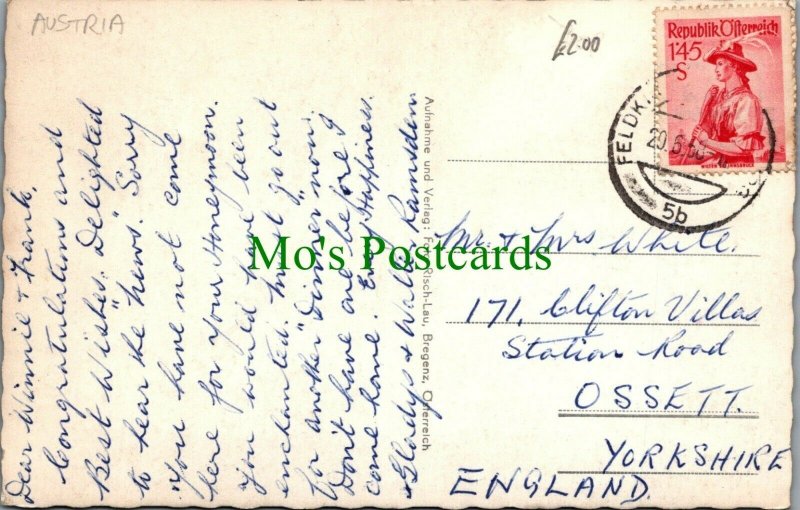 AUSTRIA
£2.00
Dear Winnie & Frank,
Congratulations and
Best Wishes. Delighted
to hear the "news". Sorry
you have not come
here for your Honeymoon.
You would have been
enchanted. Must go out
for another "Dinner" now.
Don't have one before I
come home. Every Happiness.
Gladys & Walter Ramsden
Aufnahme und Verlag: Foto Risch-Lau, Bregenz, Österreich
Republik Österreich
1'45
S
FELDK
29.6.5
5b
Mr. & Mrs White.
171, Clifton Villas
Station Road
OSSETT.
YORKSHIRE
ENGLAND.
Mo's Postcards